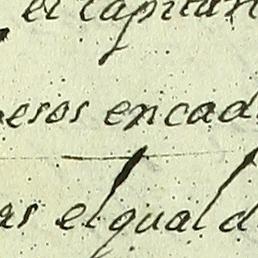 el capitan
pesos encad
as el qual d